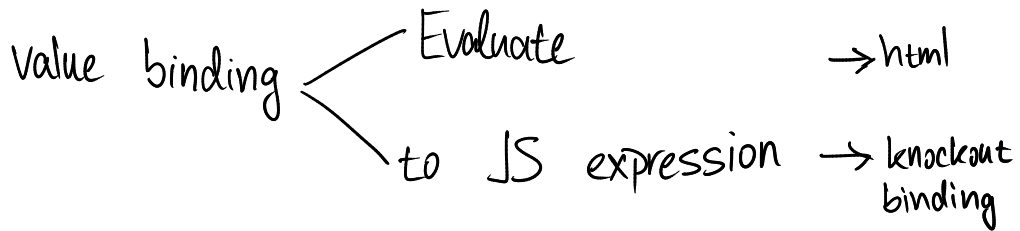 value binding
Evaluate → html
to JS expression → knockout
binding